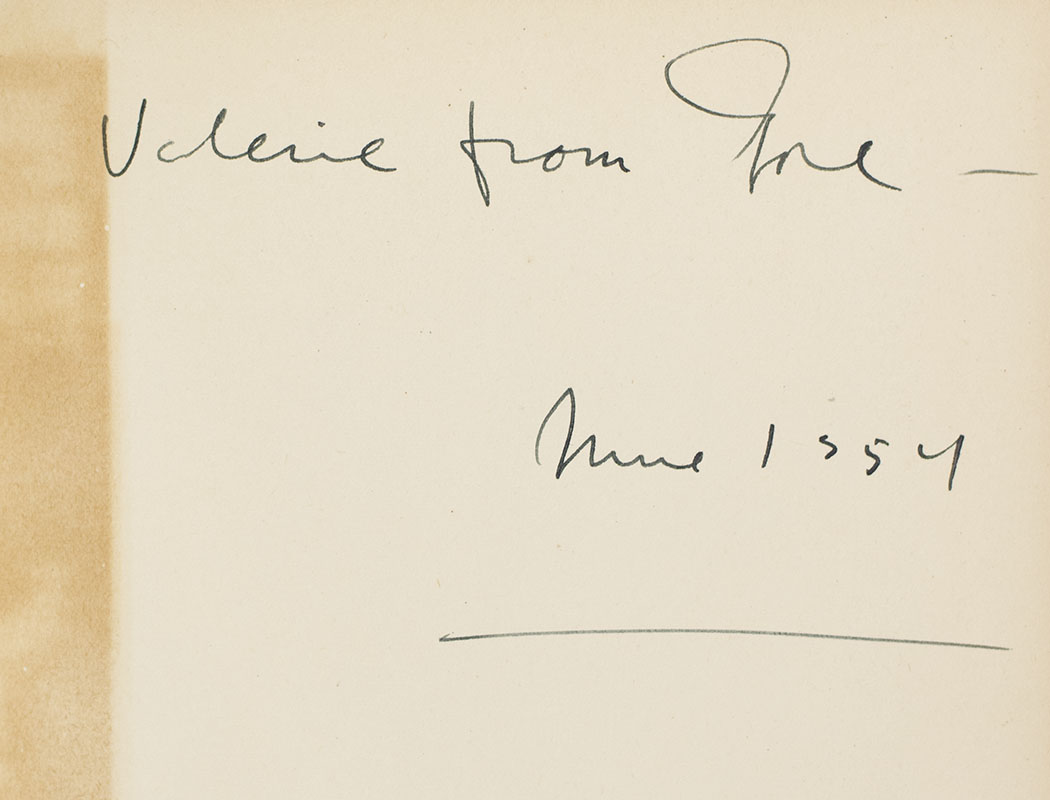 Valerie from Gore —
June 1954